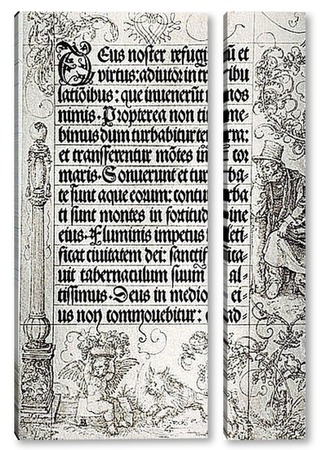 Deus noster refugi ũ et
virtus: adiutor in tr ibu
latiõibus: que invenerũt nos
nimis. Propterea non ti me
bimus dum turbabitur te ra:
et transferentur mõtes i cor
maris. Sonuerunt et tur ba
te sunt aque eorum: contu ba
ti sunt montes in fortitud ine
eius. Fluminis impetus leti
ficat civitatem dei: sanctif ca
vit tabernaculum suum al
tissimus. Deus in medio ei
us non commovebitur: ad